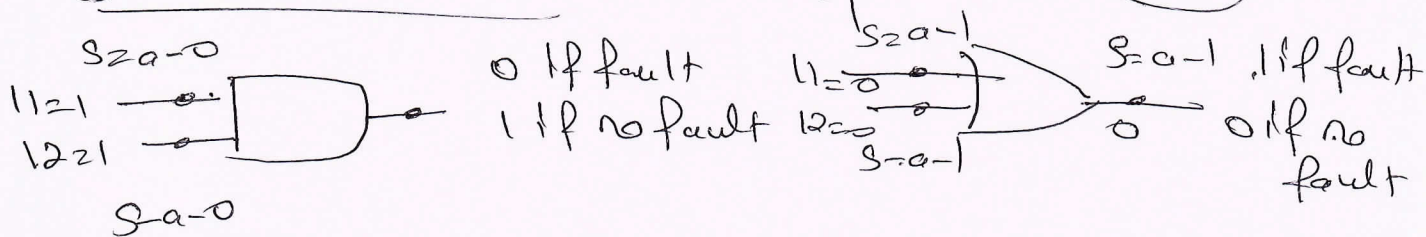 S-a-0
I1=1
I2=1
S-a-0
0 if fault
1 if no fault
S-a-1
I1=0
I2=0
S-a-1
S-a-1
0
1 if fault
0 if no
fault